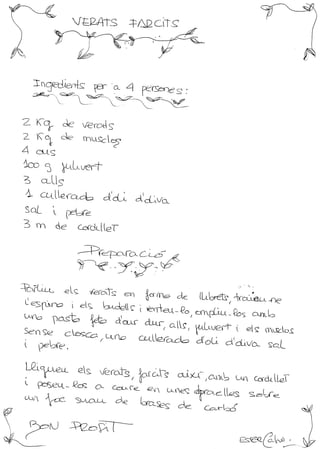 VERATS FARCITS
Ingredients per a 4 persones:
2 Kg de verats
2 Kg de musclos
4 ous
100 g julivert
3 alls
1 cullerada d'oli d'oliva
sal i pebre
3 m de cordillet
Preparació
els verats en forma de llibrets, traieu-ne
l'espina i els budells i renteu-lo, ompliu-los amb
una pasta feta d'ou dur, alls, julivert i els musclos
sense closca, una cullerada d'oli d'oliva sal
i pebre.
Lligueu els verats, farcits així, amb un cordillet
i poseu-los a coure en unes graelles sobre
un foc suau de brases de carbó
BON PROFIT